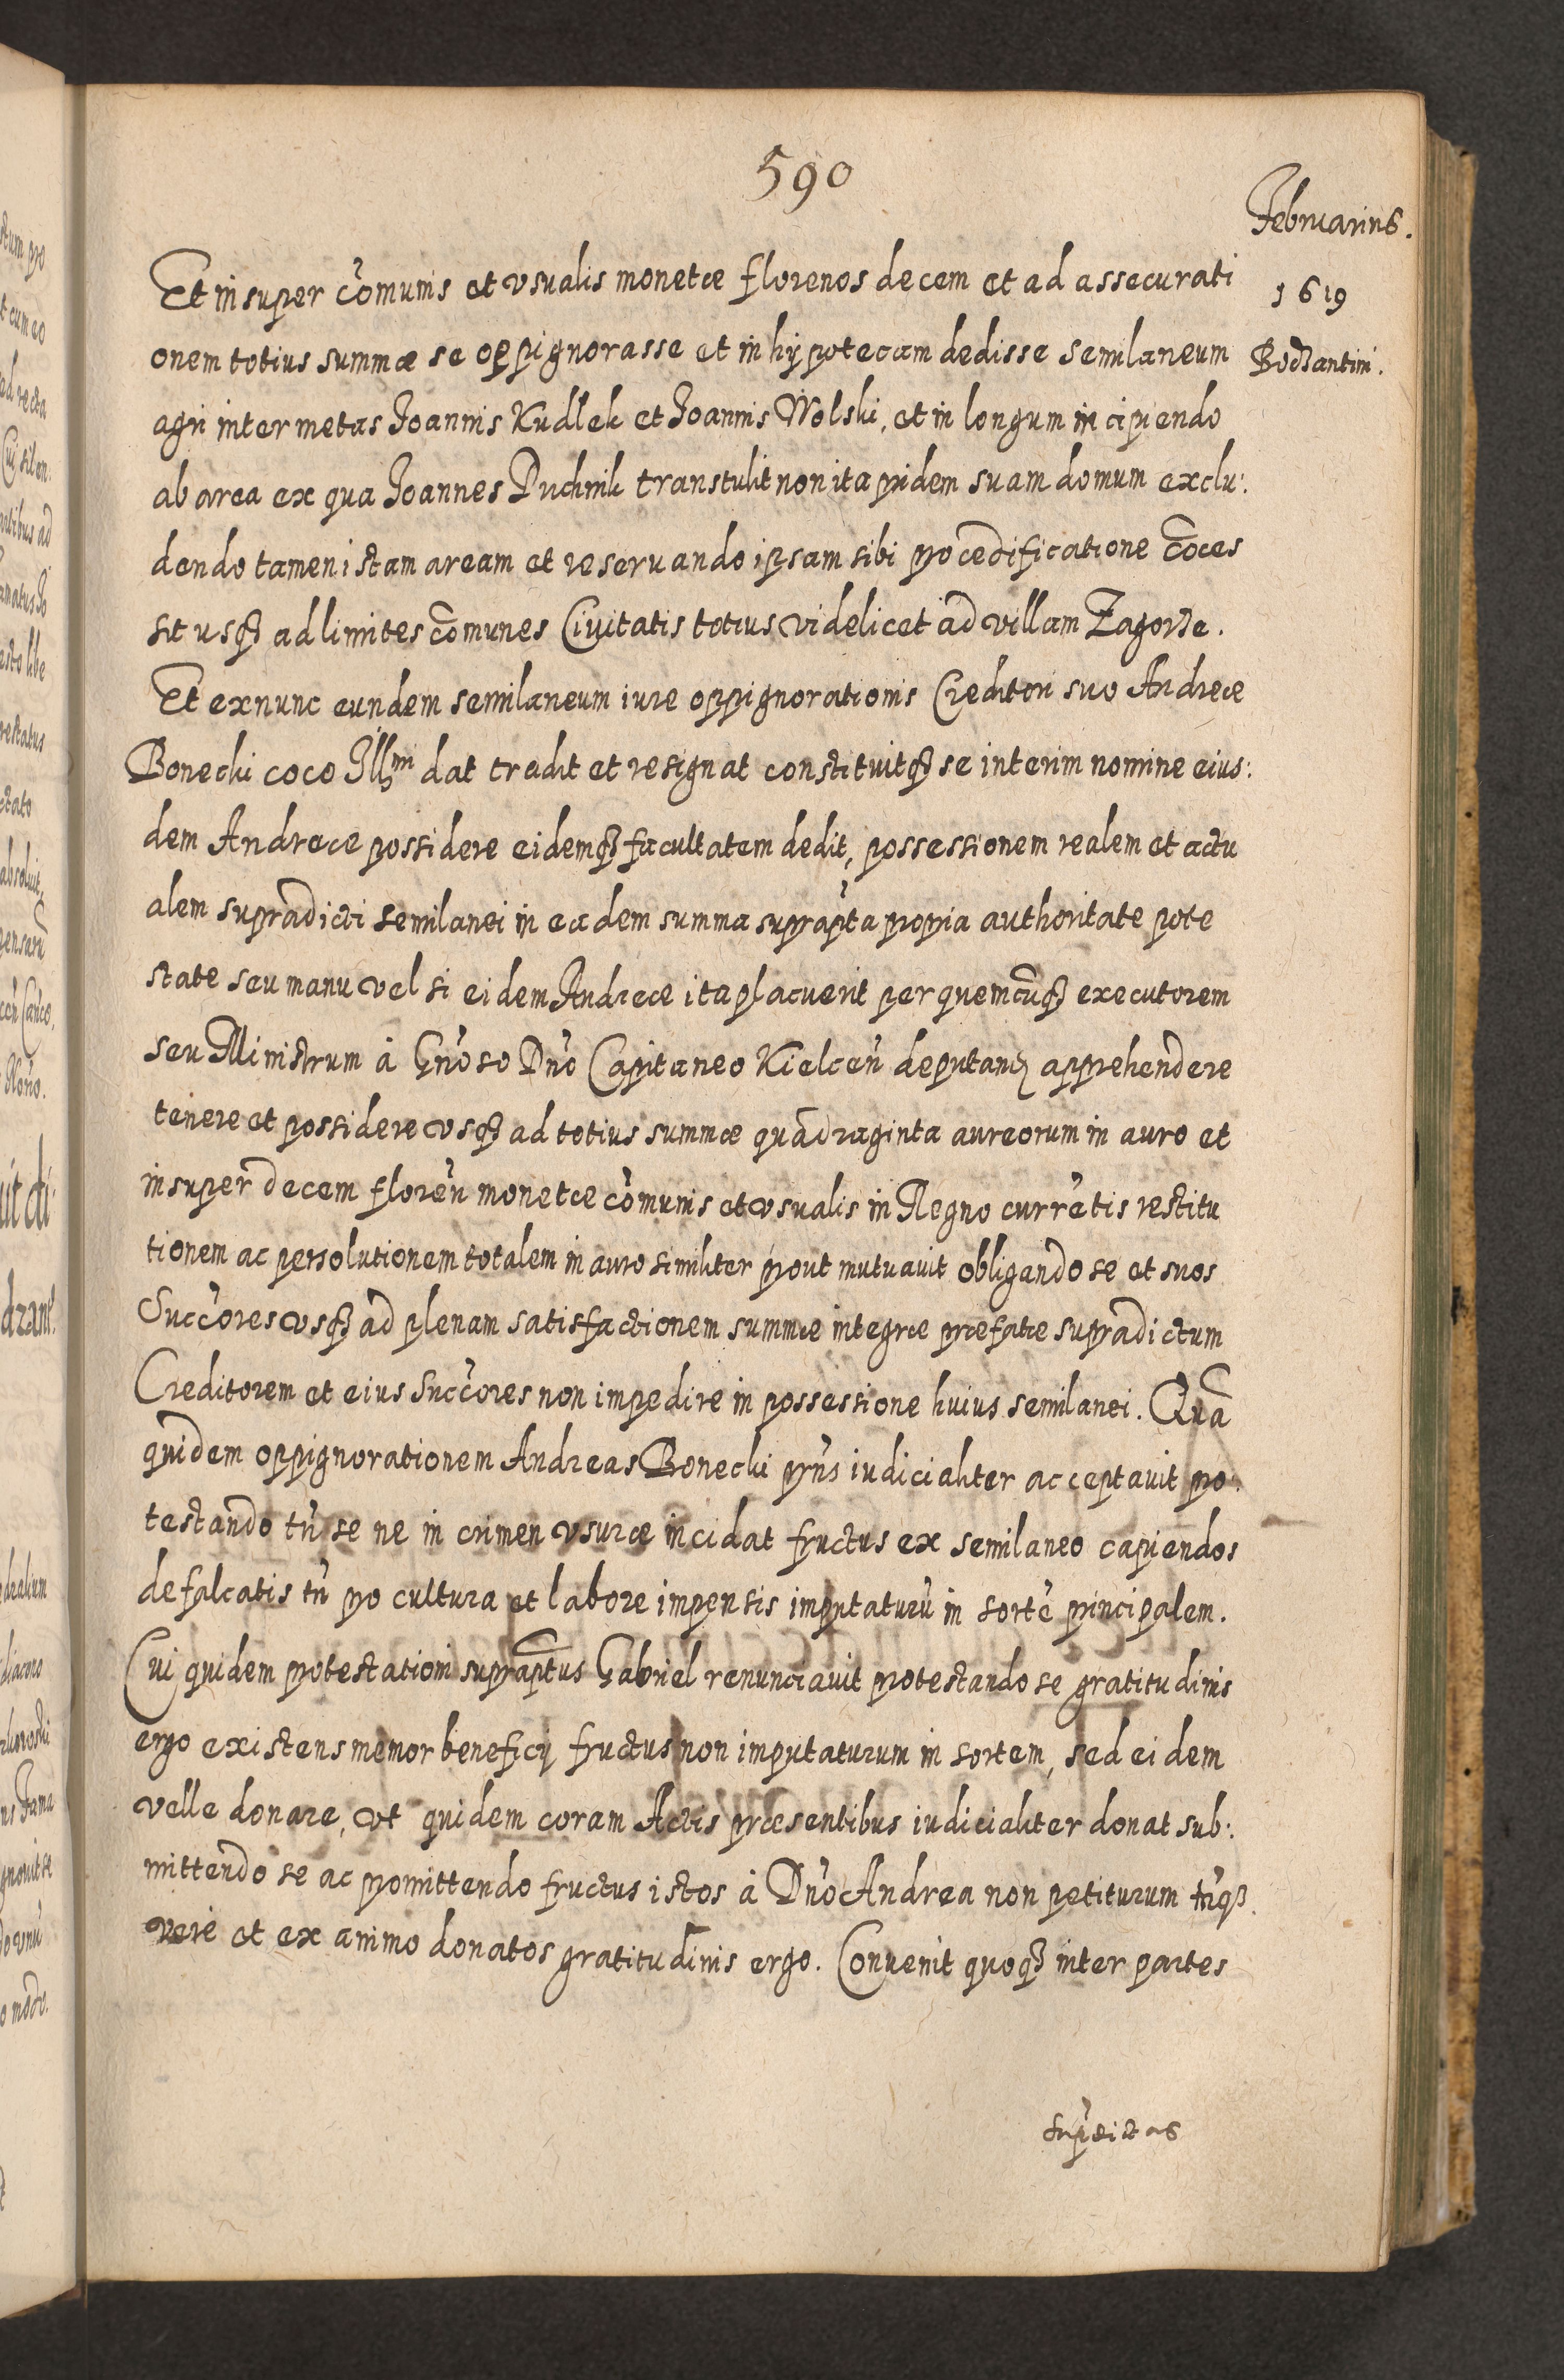 590
Februarius.
1619
Bodzantini.
Et insuper co̅munis et vsualis monetæ florenos decem et ad assecurati
onem totius summæ se oppignorasse et in hÿpotecam dedisse semilaneum
agri inter metas Joannis Kudłek et Joannis Wolski, et in longum incipiendo
ab area ex qua Joannes Puchnik transtulit non ita pridem suam domum exclu:
dendo tamen istam aream et reseruando ipsam sibi pro ædificatione
sit usq3 ad limites co̅munes Ciuitatis totius videlicet ad villam Zagorze.
Et ex nunc eundem semilaneum iure oppignorationis Creditori suo Andreæ
Bonecki coco Illmi dat tradit et resignat constituitq3 se interim nomine eius:
dem Andreæ possidere eidemq3 facultatem dedit, possessionem realem et actu
alem supradicti semilanei in eadem summa suprapta propria authoritate pote
state seu manu vel si eidem Andreæ ita placuerit per quemcu̅q3 executorem
seu Ministrum à Gn̅oso Dn̅o Capitaneo Kielcen̅ deputand apprehendere
tenere et possidere vsq3 ad totius summæ quadraginta aureorum in auro et
insuper decem floren̅ monetæ co̅munis et vsualis in Regno curre̅tis restitu
tionem ac persolutionem totalem in auro similiter prout mutuauit obligando se et suos
Succ̅ores vsq3 ad plenam satisfactionem summæ integræ præfatæ supradictum
Creditorem et eius Succ̅ores non impedire in possessione huius semilanei. Qua̅
quidem oppignorationem Andreas Bonecki prn̅s iudicialiter acceptauit pro:
testando tn̅ se ne in crimen vsuræ incidat fructus ex semilaneo capiendos
defalcatis tn̅ pro cultura et labore impensis imputaturu̅ in sorte̅ principalem.
Cui quidem protestationi supraptus Gabriel renunciauit protestando se gratitudinis
ergo existens memor beneficij fructus non imputaturum in sortem, sed eidem
velle donare, vt quidem coram Actis præsentibus iudicialiter donat sub:
mittendo se ac promittendo fructus istos à Dn̅o Andrea non petiturum tn̅q3
verè et ex animo donatos gratitudinis ergo. Conuenit quoq3 inter partes
sup̅dictas